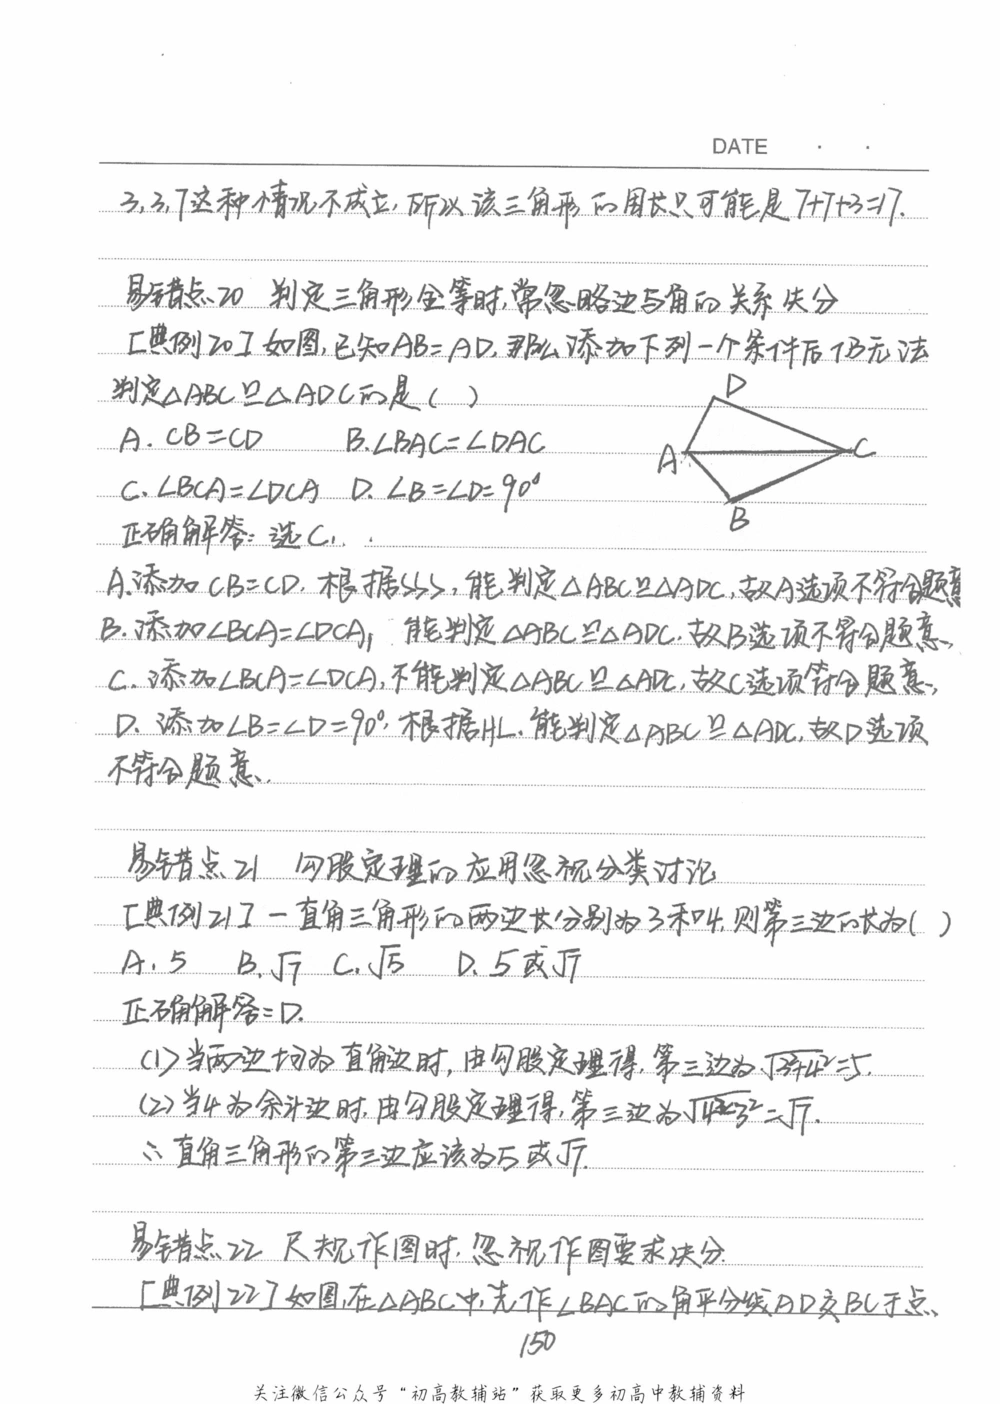 DATE · ·
3,3,7这种情况不成立,所以该三角形的周长只可能是7+7+3=17.
易错点20 判定三角形全等时,常忽略边与角的关系失分
[典例20]如图,已知AB=AD,那么添加下列一个条件后仍无法
判定△ABC≌△ADC的是( )
A. CB=CD B.∠BAC=∠DAC
C.∠BCA=∠DCA D.∠B=∠D=90°
D
A
C
B
正确解答:选C.
A.添加CB=CD,根据SSS,能判定△ABC≌△ADC,故A选项不符合题意
B.添加∠BCA=∠DCA,能判定△ABC≌△ADC.故B选项不符合题意.
C.添加∠BCA=∠DCA,不能判定△ABC≌△ADC,故C选项符合题意.
D. 添加∠B=∠D=90°,根据HL.能判定△ABC≌△ADC,故D选项
不符合题意.
易错点21 勾股定理的应用忽视分类讨论
[典例21]一直角三角形的两边长分别为3和4,则第三边的长为( )
A. 5 B.√7 C.√5 D. 5或√7
正确解答=D.
(1)当两边均为直角边时,由勾股定理得,第三边为√3²+4²=5.
(2)当4为余斗边时.由勾股定理得,第三边为√4²-3²=√7.
∴直角三角形的第三边应该为5或√7.
易错点22 尺规作图时.忽视作图要求失分.
[典例22]如图,在△ABC中,先作∠BAC的角平分线AD交BC于点
150
关注微信公众号“初高教辅站”获取更多初高中教辅资料